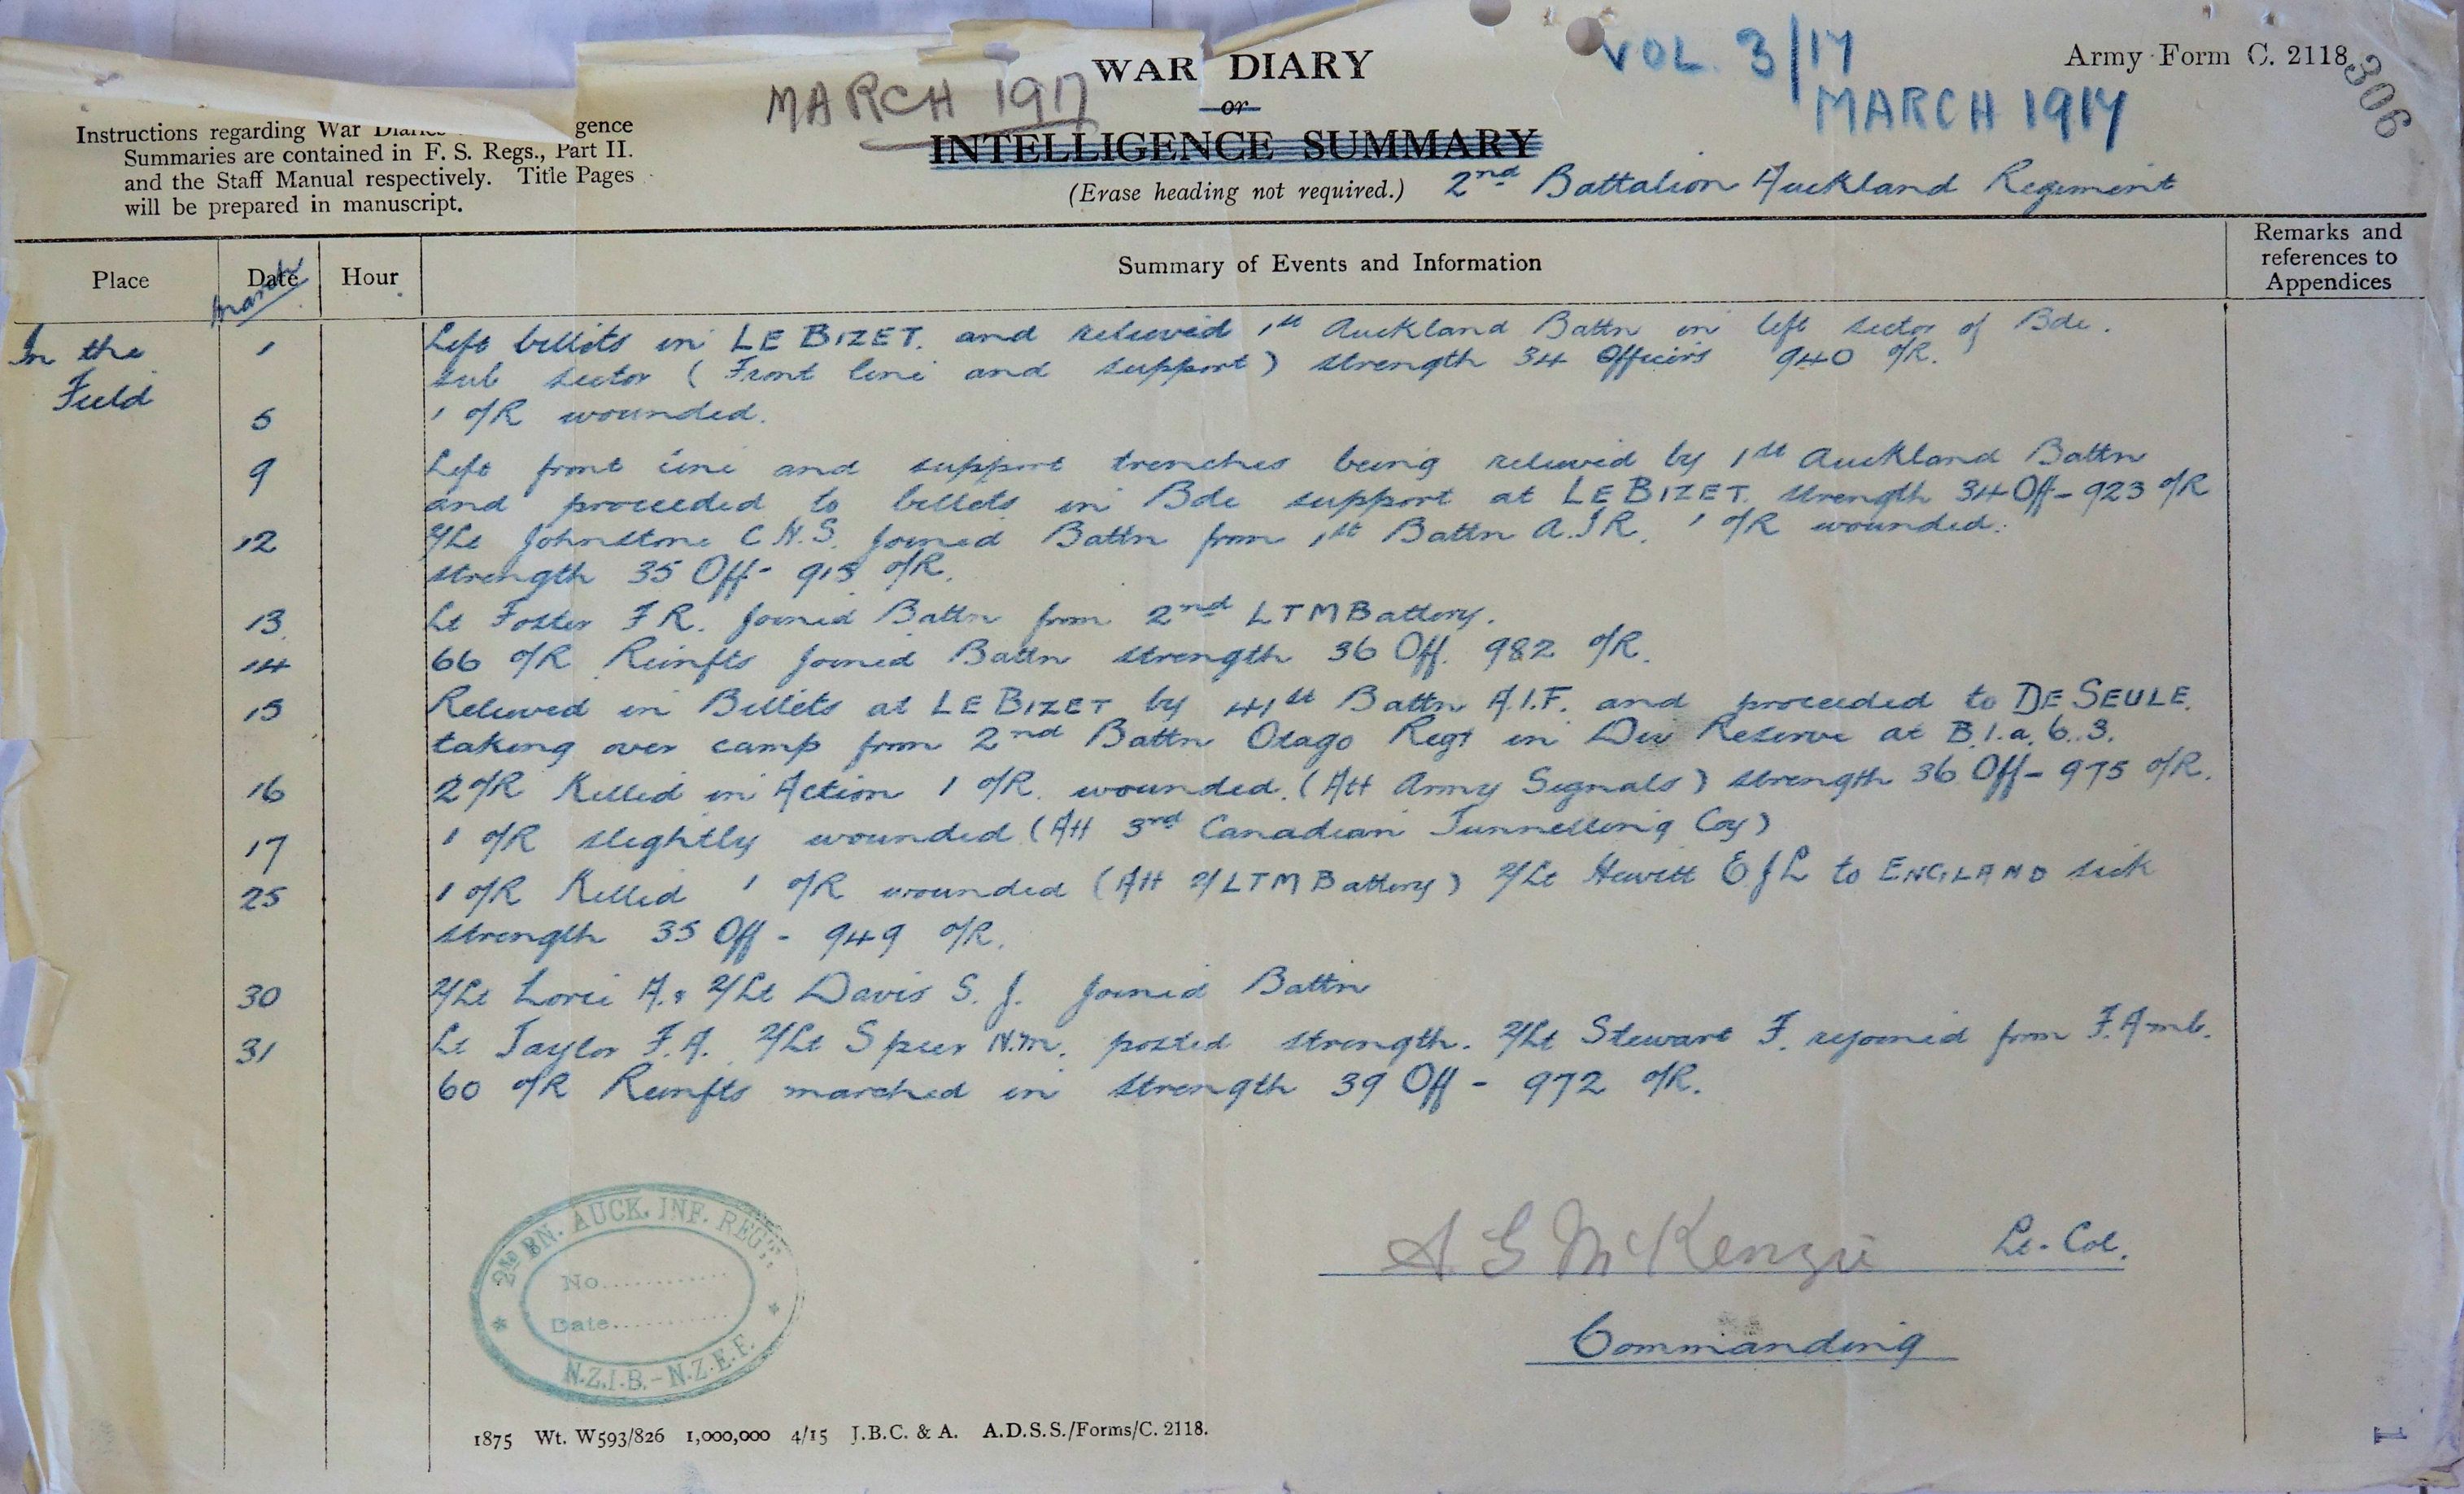 WAR DIARY
or
INTELLIGENCE SUMMARY
(Erase heading not required.)
MARCH 1917
VOL. 3/17
MARCH 1917
Army Form C. 2118
306
2nd Battalion Auckland Regiment
Instructions regarding War Diaries gence
Summaries are contained in F. S. Regs., Part II.
and the Staff Manual respectively. Title Pages
will be prepared in manuscript.
Place Date Hour Summary of Events and Information Remarks and references to Appendices
March
In the
Field
1 Left billets in LE BIZET. and relieved 1st Auckland Battn in left sector of Bde.
sub sector (Front line and support) strength 34 Officers 940 O/R.
5 1 O/R wounded.
9 Left front line and support trenches being relieved by 1st Auckland Battn
and proceeded to billets in Bde support at LE BIZET. strength 34 Off - 923 O/R
12 2/Lt Johnstone C.N.S. joined Battn from 1st Battn A.I.R. 1 O/R wounded.
strength 35 Off - 915 O/R.
13. Lt Foster F R. joined Battn from 2nd LTM Battery.
14 66 O/R Reinfts joined Battn strength 36 Off. 982 O/R.
15 Relieved in Billets at LE BIZET by 41st Battn A.I.F. and proceeded to DE SEULE.
taking over camp from 2nd Battn Otago Regt in Div Reserve at B.1.a.6.3.
16 2 O/R Killed in Action 1 O/R. wounded. (Att Army Signals) strength 36 Off - 975 O/R.
17 1 O/R slightly wounded (Att 3rd Canadian Tunnelling Coy)
25 1 O/R Killed 1 O/R wounded (Att 2/LTM Battery) 2/Lt Hewitt E J L to ENGLAND sick
strength 35 Off - 949 O/R.
30 2/Lt Lorie A. & 2/Lt Davis S. J. joined Battn
31 Lt Taylor F.A. 2/Lt Speer N.M. posted strength. 2/Lt Stewart F. rejoined from F. Amb.
60 O/R Reinfts marched in strength 39 Off - 972 O/R.
2ND BN. AUCK. INF. REGT.
No............
Date............
N.Z.I.B. - N.Z.E.F.
A G McKenzie Lt-Col.
Commanding
1875 Wt. W593/826 1,000,000 4/15 J.B.C. & A. A.D.S.S./Forms/C. 2118.
1